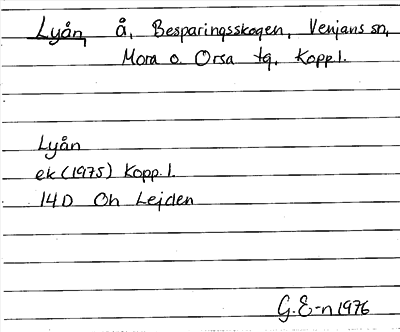 Lyån, å, Besparingsskogen, Venjans sn,
Mora o. Orsa tg, Kopp.l.
Lyån
ek (1975) Kopp.l.
14D Oh Lejden
G.E-n 1976